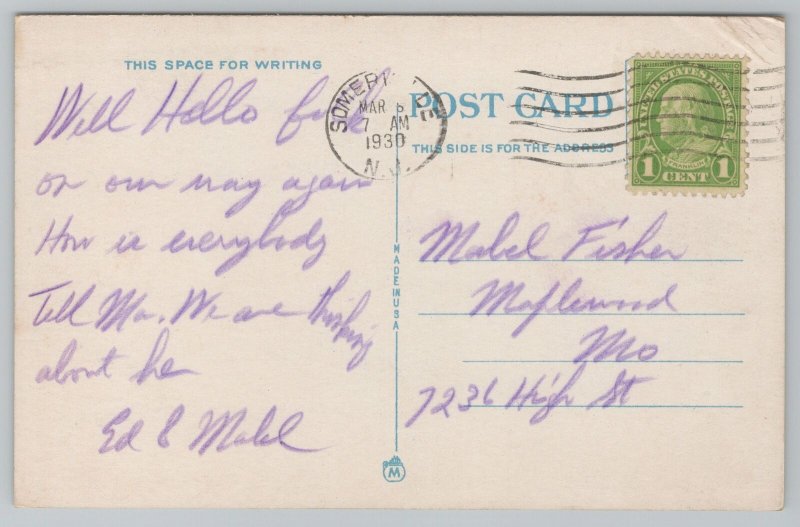 THIS SPACE FOR WRITING
Well Hello folk
on our way again
How is everybody
Tell Ma. We are thinking
about he
Ed & Mabel
SOMERVILLE
MAR 6
7 AM
1930
N.J.
POST CARD
THIS SIDE IS FOR THE ADDRESS
UNITED STATES POSTAGE
FRANKLIN
1 CENT 1
MADE IN USA
Mabel Fisher
Maplewood
Mo
7236 High St
M